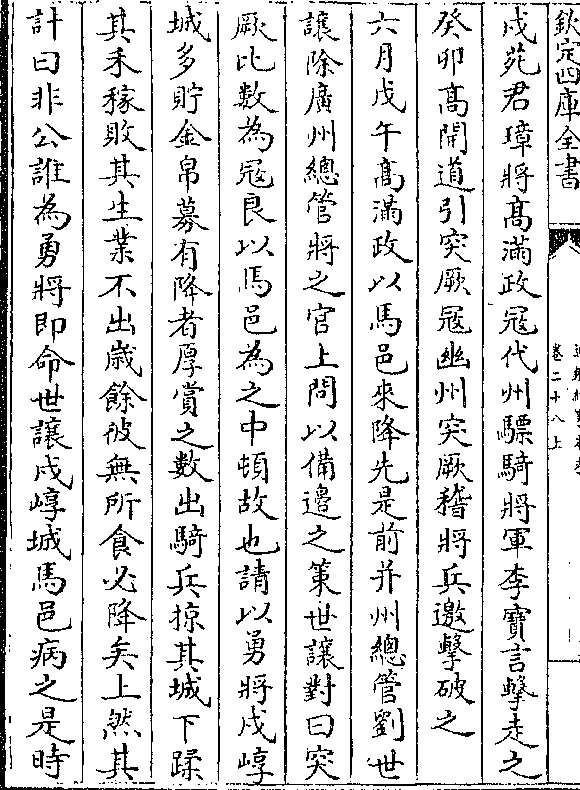 欽定四庫全書
卷二十八上
戍苑君璋將髙滿政冦代州驃騎將軍李寳言擊走之
癸卯髙開道引突厥冦幽州突厥稽將兵邀擊破之
六月戊午髙滿政以馬邑來降先是前并州總管劉世
讓除廣州總管將之官上問以備邉之策世讓對曰突
厥比數為冦良以馬邑為之中頓故也請以勇將戍崞
城多貯金帛募有降者厚賞之數出騎兵掠其城下蹂
其禾稼敗其生業不出歲餘彼無所食必降矣上然其
計曰非公誰為勇將即命世讓戍崞城馬邑病之是時